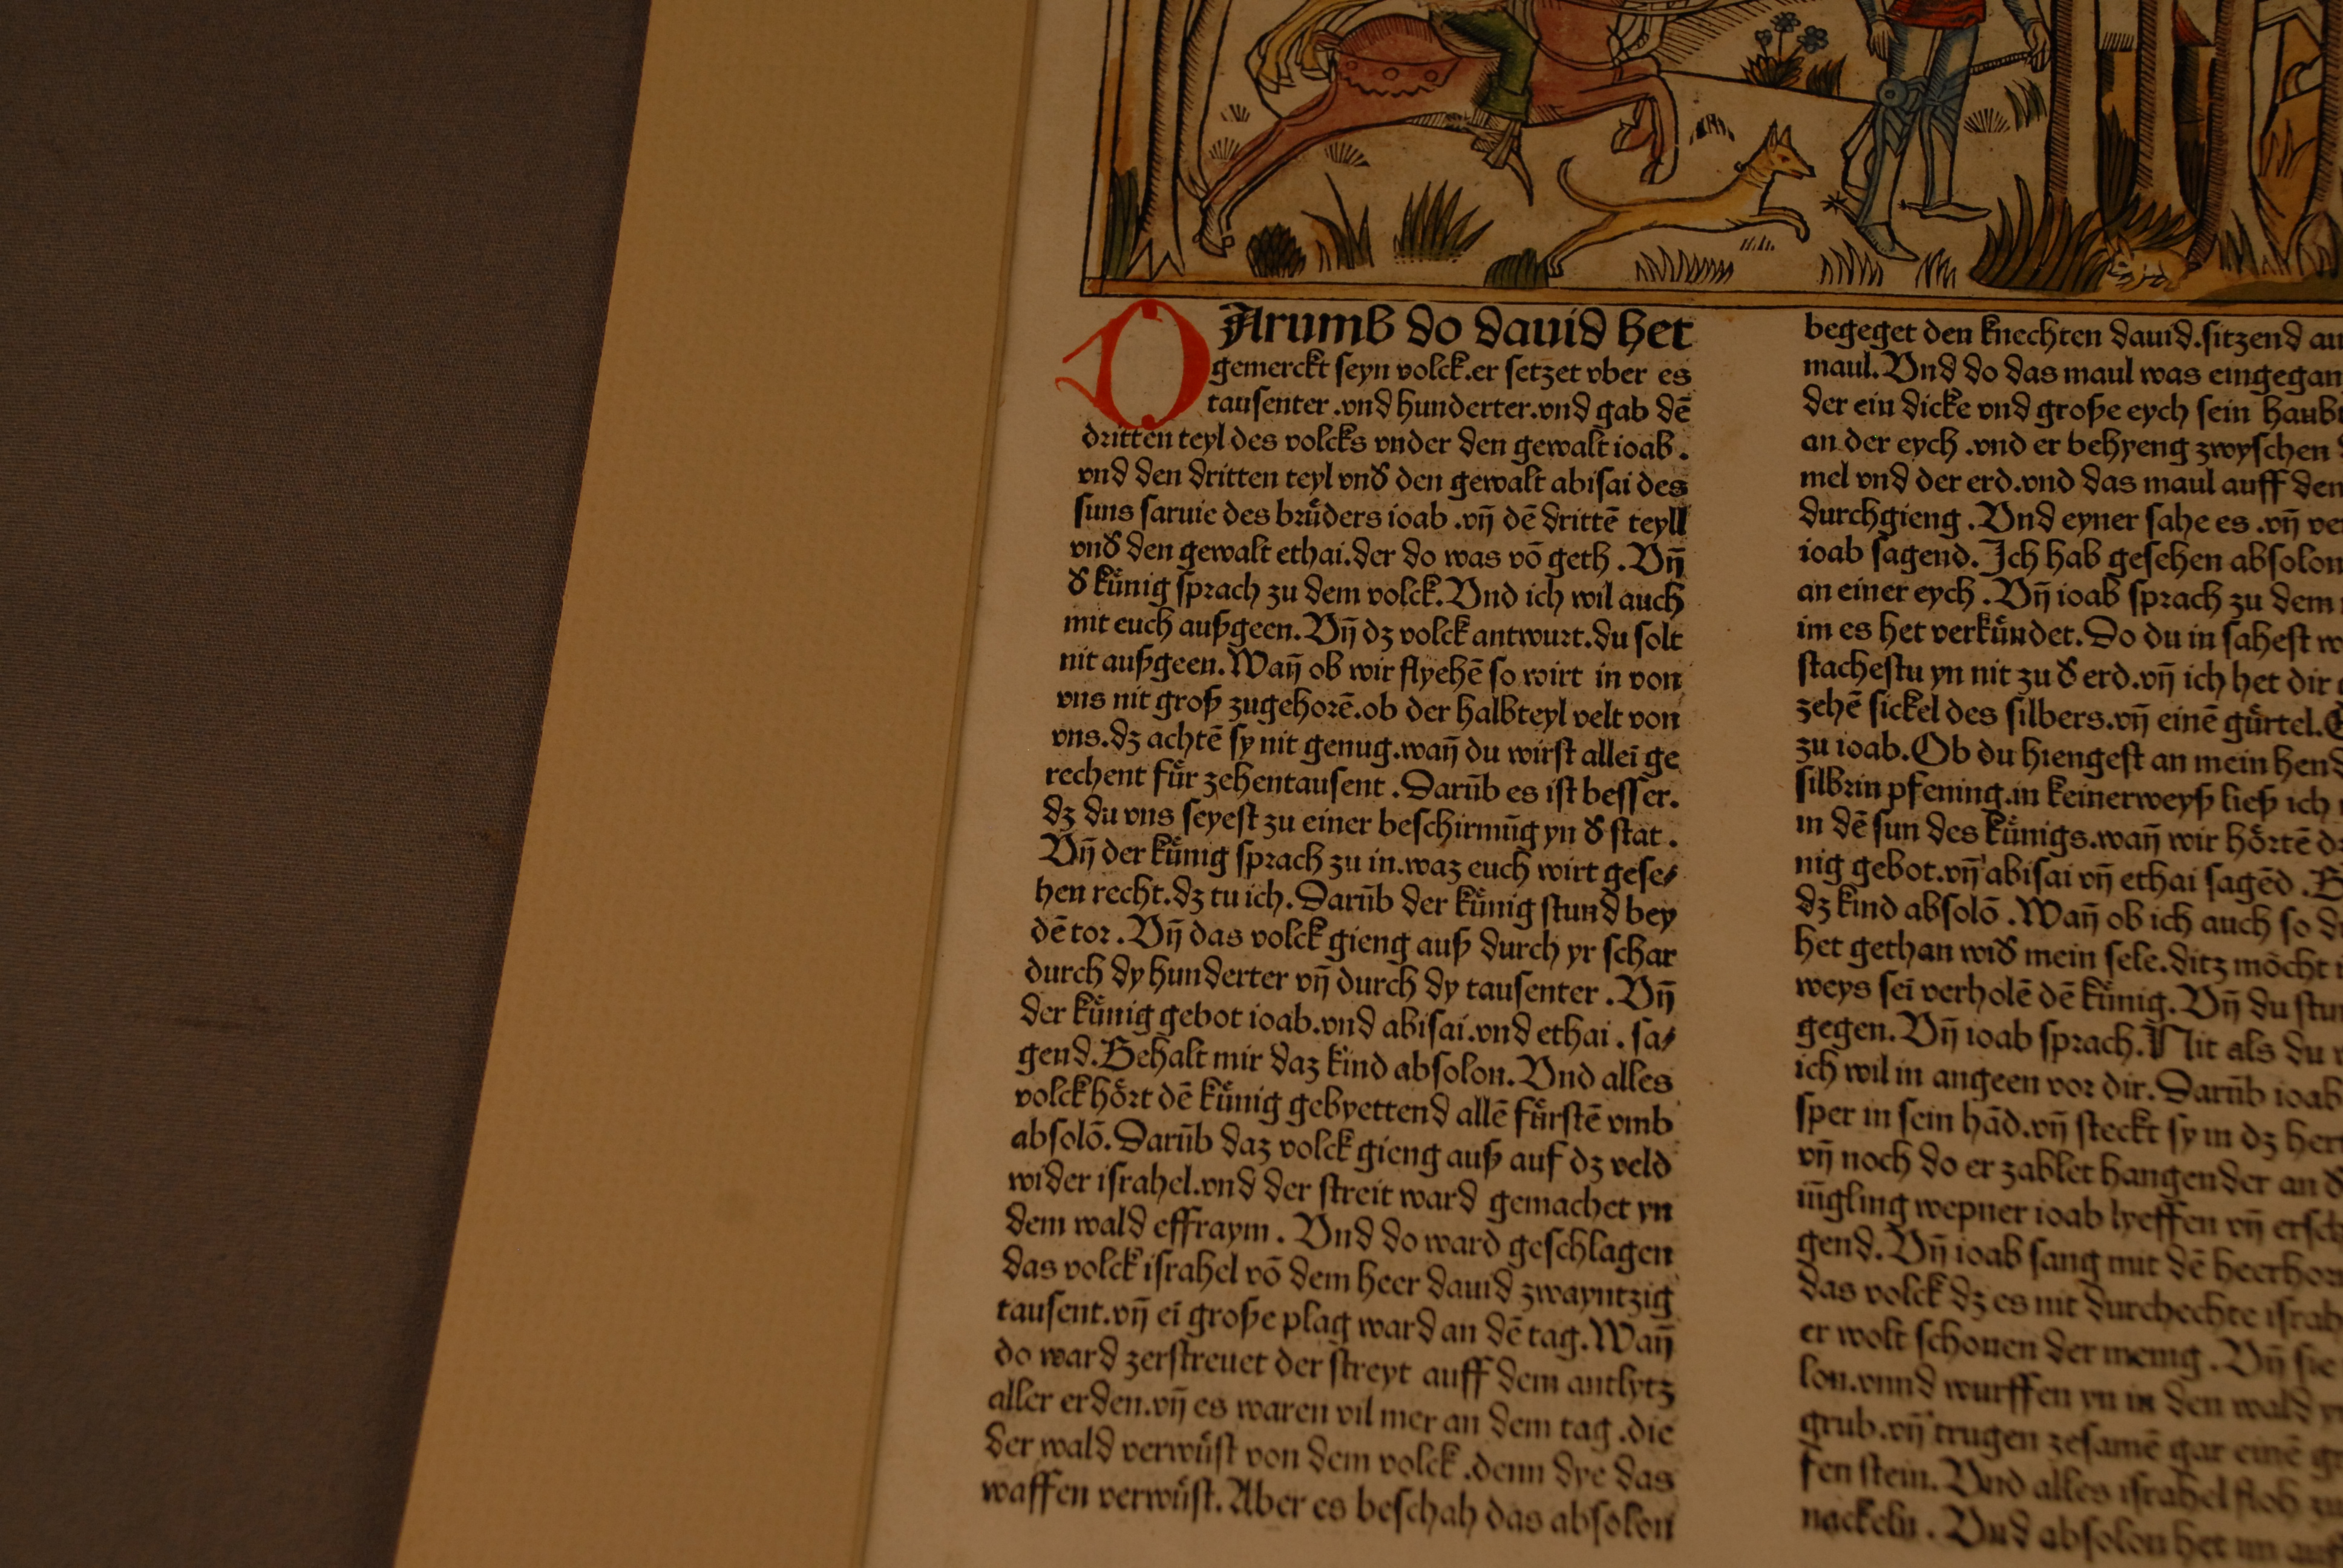 DArumb do dauid het
gemerckt seyn volck.er setzet vber es
tausenter.vnd hunderter.vnd gab dē
dritten teyl des volcks vnder den gewalt ioab.
vnd den dritten teyl vnd̕ den gewalt abisai des
suns saruie des bruͤders ioab.vn̄ dē drittē teyll
vnd̕ den gewalt ethai.der do was vō geth. Vn̄
d̕ kuͤnig sprach zu dem volck.Vnd ich wil auch
mit euch außgeen.Vn̄ dz volck antwurt.du solt
nit außgeen.Wan̄ ob wir flyehē so wirt in von
vns nit groß zugehorē.ob der halbteyl velt von
vns.dz achtē sy nit genug.wan̄ du wirst alleī ge
rechent fuͤr zehentausent. Darūb es ist besser.
dz du vns seyest zu einer beschirmūg yn d̕ stat.
Vn̄ der kuͤnig sprach zu in.waz euch wirt gese⸗
hen recht.dz tu ich. Darūb der kuͤnig stund bey
dē tor. Vn̄ das volck gieng auß durch yr schar
durch dy hunderter vn̄ durch dy tausenter. Vn̄
der kuͤnig gebot ioab.vnd abisai.vnd ethai. sa⸗
gend.Behalt mir daz kind absolon.Vnd alles
volck hoͤrt dē kuͤnig gebyettend allē fuͤrstē vmb
absolō.Darūb daz volck gieng auß auf dz veld
wider israhel.vnd der streit ward gemachet yn
dem wald effraym. Vnd do ward geschlagen
das volck israhel vō dem heer dauid zwayntzig
tausent.vn̄ eī große plag ward an dē tag.Wan̄
do ward zerstreuet der streyt auff dem antlytz
aller erden.vn̄ es waren vil mer an dem tag.die
der wald verwuͤst von dem volck.denn dye das
waffen verwuͤst. Aber es beschah das absolon
begeget den knechten dauid.sitzend
maul.Vnd do das maul was eingegan
der ein dicke vnd große eych sein
an der eych.vnd er behyeng zwyschen
mel vnd der erd.vnd das maul auff
durchgieng. Vnd eyner sahe es.vn̄
ioab sagend. Ich hab gesehen absolon
an einer eych. Vn̄ ioab sprach zu dem
im es het verkuͤndet. Do du in sahest
stachestu yn nit zu d̕ erd.vn̄ ich het dir
zehē sickel des silbers.vn̄ einē guͤrtel.
zu ioab. Ob du hiengest an mein
silbrin pfening.in keinerweyß ließ ich
in dē sun des kuͤnigs.wan̄ wir hoͤrtē
nig gebot.vn̄ abisai vn̄ ethai sagēd.
dz kind absolō. Wan̄ ob ich auch so
het gethan wid̕ mein sele.ditz moͤcht
weys seī verholē dē kuͤnig. Vn̄ du
gegen. Vn̄ ioab sprach. Nit als du
ich wil in angeen vor dir. Darūb ioab
sper in sein hād.vn̄ steckt sy in dz
vn̄ noch do er zablet hangender an
iūgling wepner ioab lyeffen vn̄
gend. Vn̄ ioab sang mit dē
das volck dz es nit durchechte
er wolt schonen der menig. Vn̄ sie
lon.vnnd wurffen yn in den wald
grub.vn̄ trugen zesamē gar einē
fen stein. Vnd alles israhel floh
nackeln. Vnd absolon het im